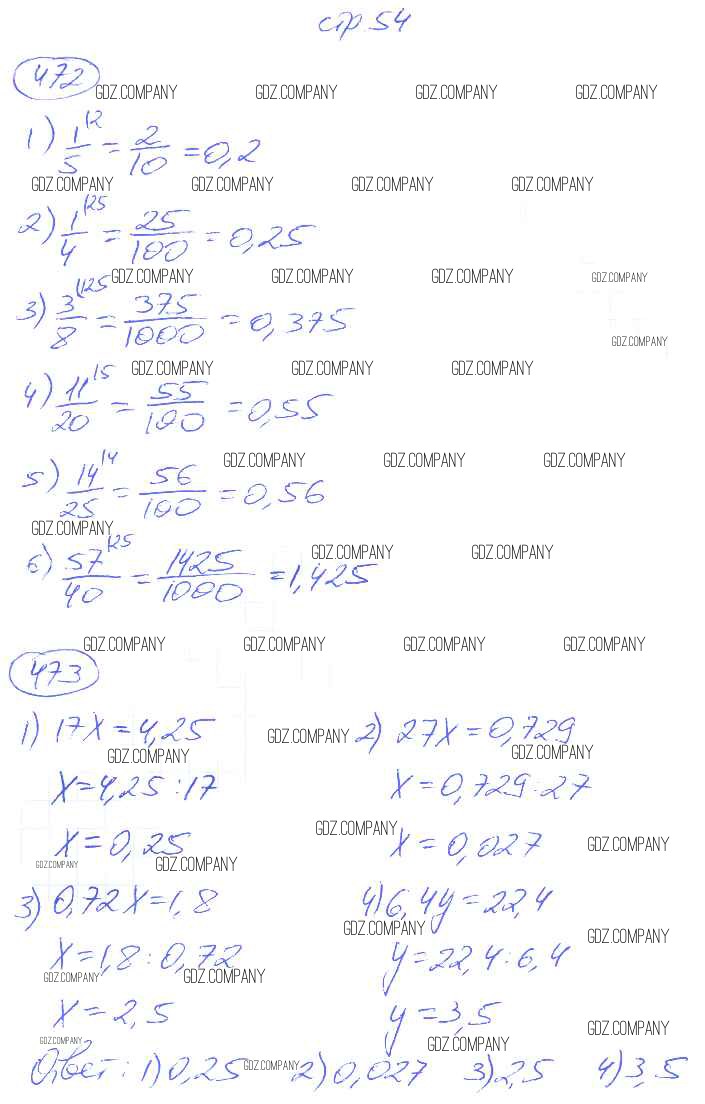 стр 54
472
GDZ.COMPANY GDZ.COMPANY GDZ.COMPANY GDZ.COMPANY
1) 1/5 |2 = 2/10 = 0,2
GDZ.COMPANY GDZ.COMPANY GDZ.COMPANY GDZ.COMPANY
2) 1/4 |25 = 25/100 = 0,25
GDZ.COMPANY GDZ.COMPANY GDZ.COMPANY GDZ.COMPANY
3) 3/8 |125 = 375/1000 = 0,375
GDZ.COMPANY
GDZ.COMPANY GDZ.COMPANY GDZ.COMPANY
4) 11/20 |5 = 55/100 = 0,55
GDZ.COMPANY GDZ.COMPANY GDZ.COMPANY
5) 14/25 |4 = 56/100 = 0,56
GDZ.COMPANY
GDZ.COMPANY GDZ.COMPANY
6) 57/40 |25 = 1425/1000 = 1,425
GDZ.COMPANY GDZ.COMPANY GDZ.COMPANY GDZ.COMPANY
473
1) 17x = 4,25 GDZ.COMPANY 2) 27x = 0,729
GDZ.COMPANY GDZ.COMPANY
x = 4,25 : 17 x = 0,729 : 27
GDZ.COMPANY
x = 0,25 x = 0,027 GDZ.COMPANY
GDZ.COMPANY GDZ.COMPANY
3) 0,72x = 1,8 4) 6,4y = 22,4
GDZ.COMPANY GDZ.COMPANY
x = 1,8 : 0,72 y = 22,4 : 6,4
GDZ.COMPANY GDZ.COMPANY
x = 2,5 y = 3,5
GDZ.COMPANY
GDZ.COMPANY GDZ.COMPANY
Ответ: 1) 0,25 GDZ.COMPANY 2) 0,027 3) 2,5 4) 3,5